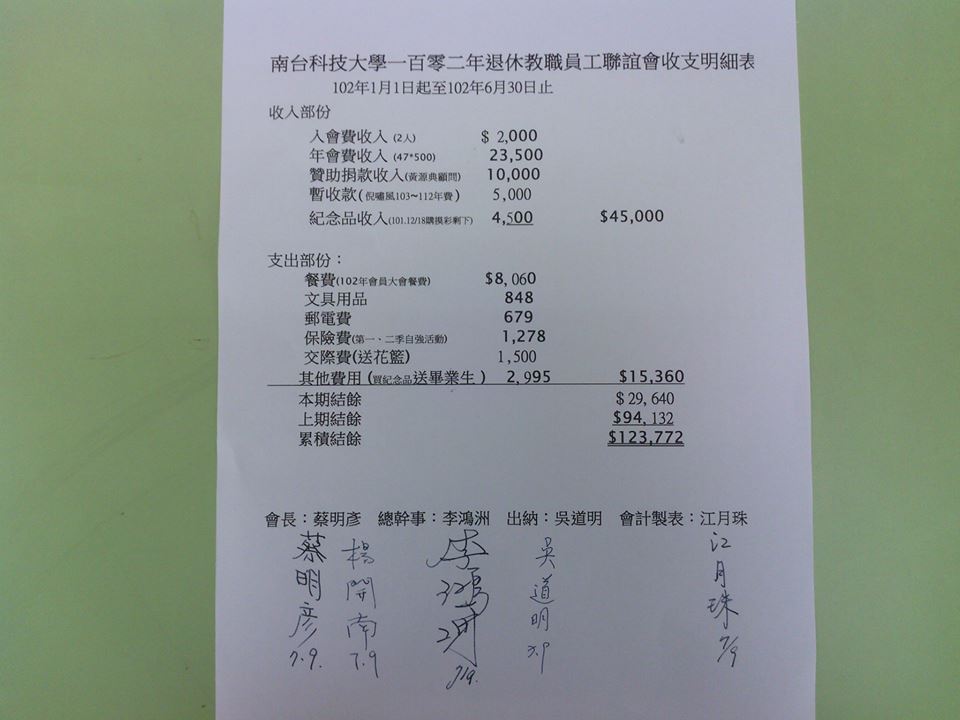 南台科技大學一百零二年退休教職員工聯誼會收支明細表
102年1月1日起至102年6月30日止
收入部份
入會費收入 (2人) $ 2,000
年會費收入 (47*500) 23,500
贊助捐款收入(黃源典顧問) 10,000
暫收款( 倪嘯風103~112年費 ) 5,000
紀念品收入(101.12/18購摸彩剩下) 4,500 $45,000
支出部份：
餐費(102年會員大會餐費) $8, 060
文具用品 848
郵電費 679
保險費(第一、二季自強活動) 1,278
交際費(送花籃) 1,500
其他費用 ( 買紀念品送畢業生 ) 2,995 $15,360
本期結餘 $ 29, 640
上期結餘 $94, 132
累積結餘 $123,772
會長：蔡明彥 總幹事：李鴻洲 出納：吳道明 會計製表：江月珠
蔡明彥 7.9.
楊開南 7.9
李鴻洲 7/9.
吳道明 7.9
江月珠 7/9